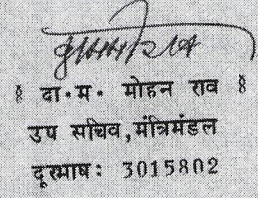 § दा॰म॰ मोहन राव §
उप सचिव,मंत्रिमंडल
दूरभाष: 3015802